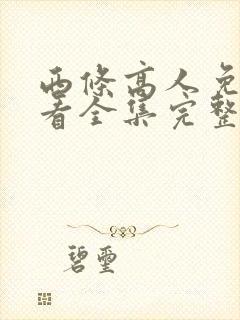 西條高人免
看全集完整
碧璽